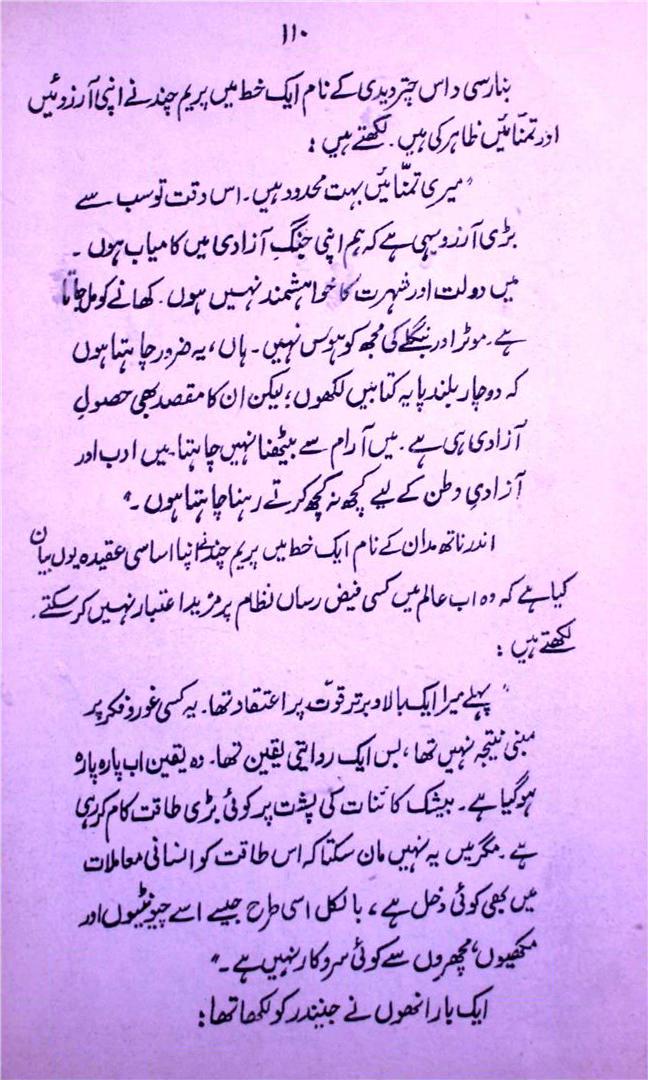 ۱۱۰
بنارسی داس چتردیدی کے نام ایک خط میں پریم چند نے اپنی آرزوئیں
اور تمنائیں ظاہر کی ہیں۔ لکھتے ہیں :
"میری تمنّائیں بہت محدود ہیں۔ اس وقت تو سب سے
بڑی آرزو یہی ہے کہ ہم اپنی جنگِ آزادی میں کامیاب ہوں۔
میں دولت اور شہرت کا خواہشمند نہیں ہوں۔ کھانے کو مل جاتا
ہے۔ موٹر اور بنگلے کی مجھ کو ہوس نہیں۔ ہاں، یہ ضرور چاہتا ہوں
کہ دوچار بلند پایہ کتابیں لکھوں؛ لیکن ان کا مقصد بھی حصولِ
آزادی ہی ہے۔ میں آرام سے بیٹھنا نہیں چاہتا۔ میں ادب اور
آزادیِ وطن کے لیے کچھ نہ کچھ کرتے رہنا چاہتا ہوں۔"
اندر ناتھ مدان کے نام ایک خط میں پریم چند نے اپنا اساسی عقیدہ یوں بیان
کیا ہے کہ وہ اب عالم میں کسی فیض رساں نظام پر مزید اعتبار نہیں کرسکتے۔
لکھتے ہیں :
"پہلے میرا ایک بالا و برتر قوّت پر اعتقاد تھا۔ یہ کسی غور و فکر پر
مبنی نتیجہ نہیں تھا، بس ایک روایتی یقین تھا۔ وہ یقین اب پارہ پارہ
ہو گیا ہے۔ بیشک کائنات کی پشت پر کوئی بڑی طاقت کام کر رہی
ہے۔ مگر میں یہ نہیں مان سکتا کہ اس طاقت کو انسانی معاملات
میں بھی کوئی دخل ہے، بالکل اسی طرح جیسے اسے چیونٹیوں اور
مکھیوں، مچھروں سے کوئی سروکار نہیں ہے۔"
ایک بار انھوں نے جنیندر کو لکھا تھا :